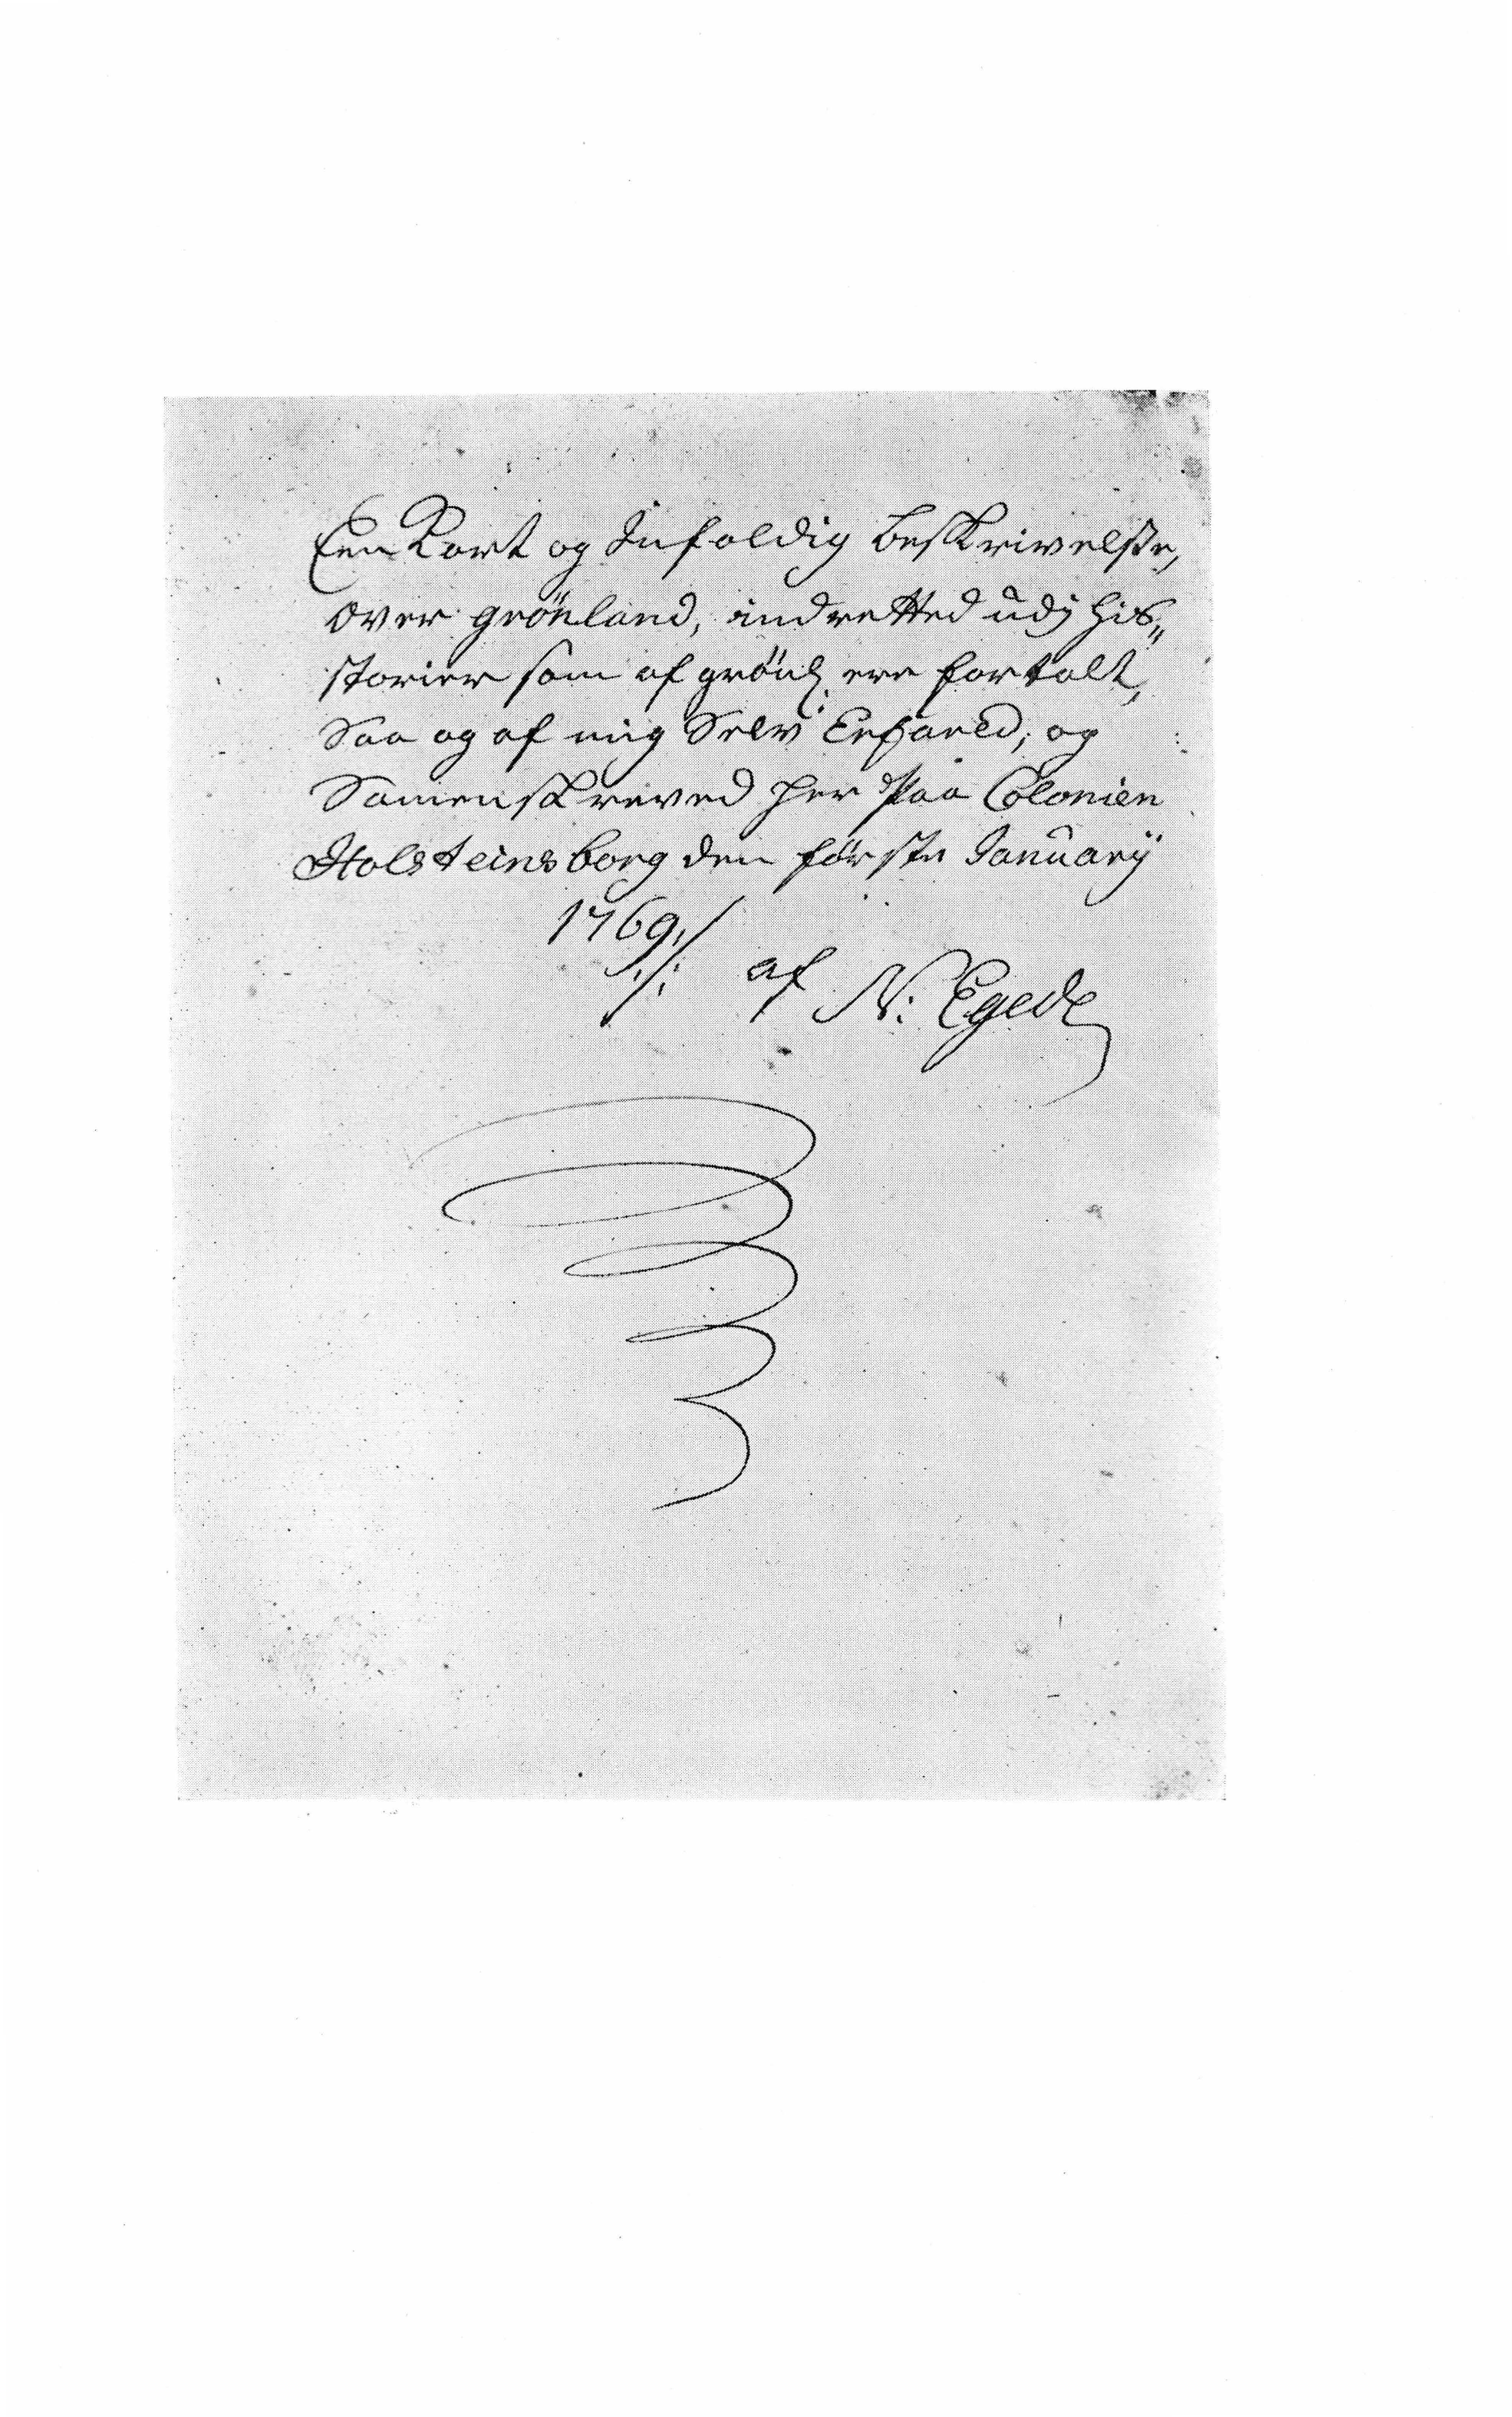 Een Kort og Enfoldig beskrivelse,
over grönland, indretted udj his„
storier som af grönl: ere fortalt,
Saa og af mig Selv Erfared, og
Samenskreved her Paa Colonien
Holsteinsborg den förste Januarij
1769 ./.
./: af N: Egede